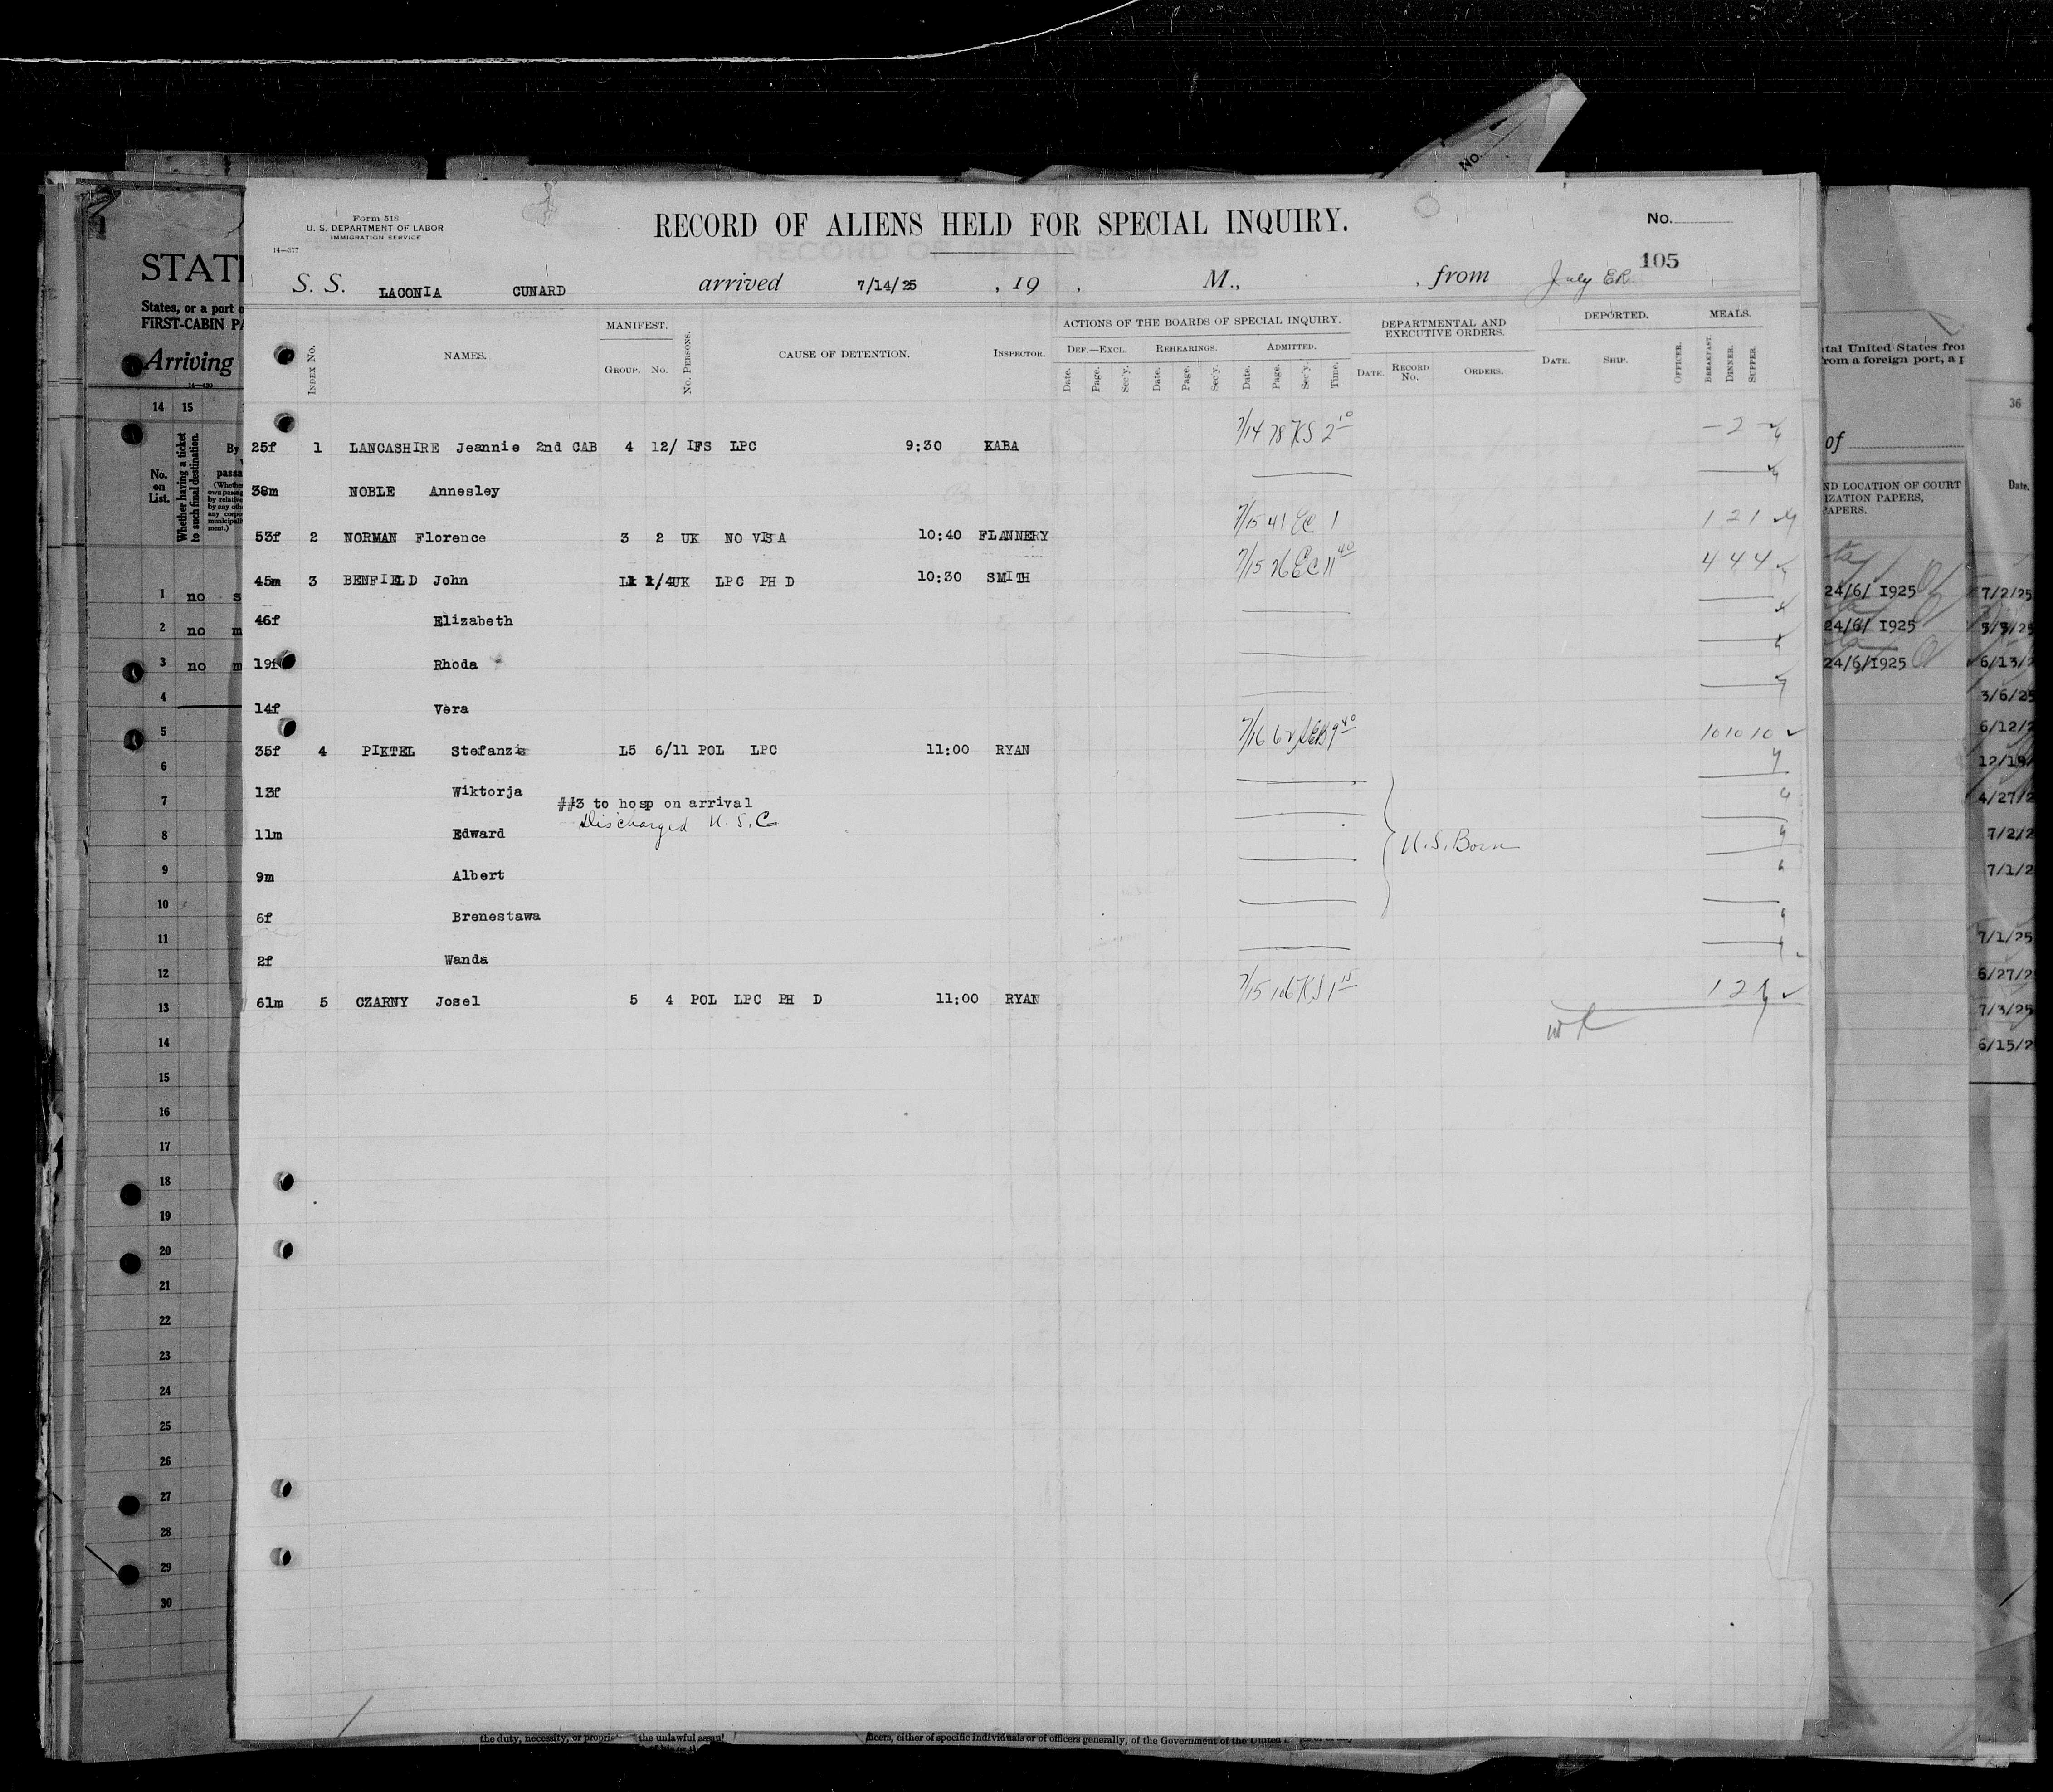 No.
Form 518
U. S. DEPARTMENT OF LABOR
IMMIGRATION SERVICE
14—377
RECORD OF ALIENS HELD FOR SPECIAL INQUIRY.
No.
105
S. S. LACONIA CUNARD arrived 7/14/25 , 19 , M., , from July ER
INDEX No. NAMES. MANIFEST. GROUP. No. No. PERSONS. CAUSE OF DETENTION. INSPECTOR. ACTIONS OF THE BOARDS OF SPECIAL INQUIRY. DEF.—EXCL. REHEARINGS. ADMITTED. Date. Page. Sec'y. Date. Page. Sec'y. Date. Page. Sec'y. Time. DEPARTMENTAL AND EXECUTIVE ORDERS. DATE. RECORD No. ORDERS. DEPORTED. DATE. SHIP. OFFICER. MEALS. BREAKFAST. DINNER. SUPPER.
25f 1 LANCASHIRE Jeannie 2nd CAB 4 12/ IFS LPC 9:30 KABA 7/14 78 KS 2 10 – 2 –
38m NOBLE Annesley
53f 2 NORMAN Florence 3 2 UK NO VISA 10:40 FLANNERY 7/15 41 EC 1 1 2 1
45m 3 BENFIELD John L1 1/4UK LPC PH D 10:30 SMITH 7/15 26 EC 11 40 4 4 4
46f Elizabeth
19f Rhoda
14f Vera
35f 4 PIKTEL Stefanzia L5 6/11 POL LPC 11:00 RYAN 7/16 62 9 40 10 10 10
13f Wiktorja
##3 to hosp on arrival
Discharged U.S.C
11m Edward
U.S. Born
9m Albert
6f Brenestawa
2f Wanda
61m 5 CZARNY Josel 5 4 POL LPC PH D 11:00 RYAN 7/15 106 KS 1 15 1 2
STAT
States, or a port o
FIRST-CABIN PA
Arriving
14—430
14 15
No. on List.
Whether having a ticket to such final destination.
By
passa
1 no s
2 no m
3 no m
4
5
6
7
8
9
10
11
12
13
14
15
16
17
18
19
20
21
22
23
24
25
26
27
28
29
30
ital United States from
from a foreign port, a p
of
36
ND LOCATION OF COURT
IZATION PAPERS,
PAPERS.
Date.
24/6/ 1925 7/2/25
24/6/ 1925
24/6/1925 6/13/2
3/6/25
6/12/2
12/19/
4/27/2
7/2/2
7/1/2
7/1/25
6/27/2
7/3/25
6/15/2
the duty, necessity, or propri the unlawful assau
ficers, either of specific individuals or of officers generally, of the Government of the United